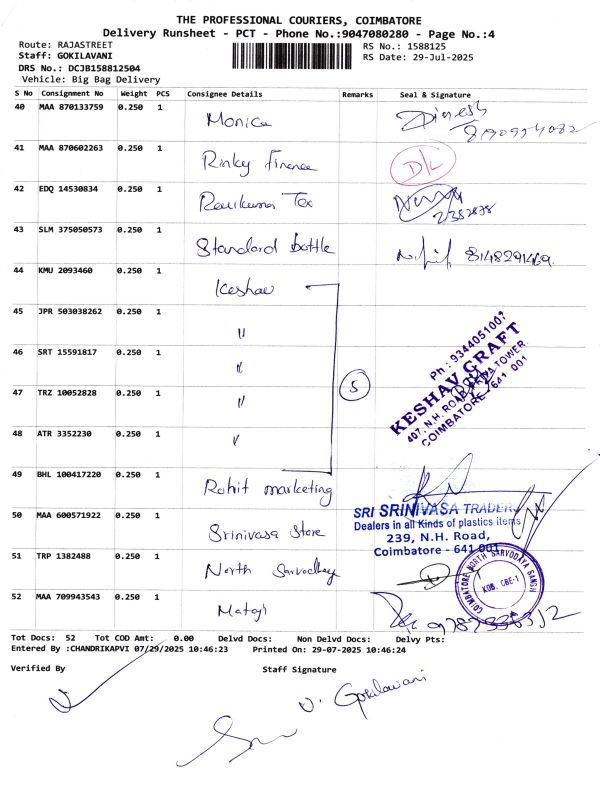 THE PROFESSIONAL COURIERS, COIMBATORE
Delivery Runsheet - PCT - Phone No.:9047080280 - Page No.:4
Route: RAJASTREET
Staff: GOKILAVANI
DRS No.: DCJB158812504
Vehicle: Big Bag Delivery
RS No.: 1588125
RS Date: 29-Jul-2025
S No Consignment No Weight PCS Consignee Details Remarks Seal & Signature
40 MAA 870133759 0.250 1 Monica Dinesh
41 MAA 870602263 0.250 1 Rinky finance D/L
42 EDQ 14530834 0.250 1 Ravikumar Tex
43 SLM 375050573 0.250 1 Standard bottle 8148291469
44 KMU 2093460 0.250 1 Keshav
45 JPR 503038262 0.250 1 "
46 SRT 15591817 0.250 1 "
47 TRZ 10052828 0.250 1 " 5
48 ATR 3352230 0.250 1 "
Ph : 9344051007
KESHAV CRAFT
407, N.H. ROAD, TOWER,
COIMBATORE - 641 001
49 BHL 100417220 0.250 1 Rohit marketing
50 MAA 600571922 0.250 1 Srinivasa Store
SRI SRINIVASA TRADERS
Dealers in all Kinds of plastics items
239, N.H. Road,
Coimbatore - 641 001
51 TRP 1382488 0.250 1 North Sarvodhay
COIMBATORE NORTH SARVODAYA SANGH
KOB. CBE-1
52 MAA 709943543 0.250 1 Mataji
Tot Docs: 52 Tot COD Amt: 0.00 Delvd Docs: Non Delvd Docs: Delvy Pts:
Entered By :CHANDRIKAPVI 07/29/2025 10:46:23 Printed On: 29-07-2025 10:46:24
Verified By Staff Signature
V. Gokilavani